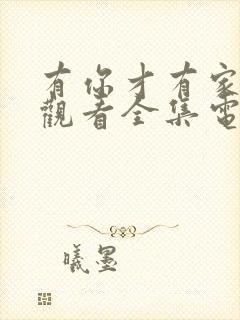 有你才有家
觀看全集電
曦墨